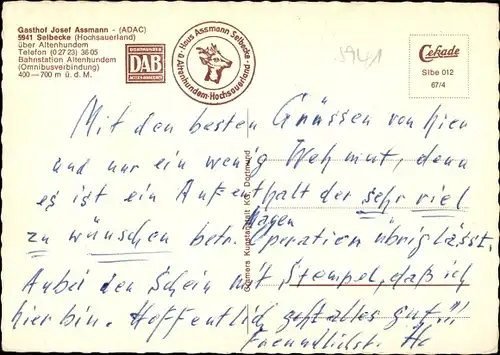 Gasthof Josef Assmann - (ADAC)
5941 Selbecke (Hochsauerland)
über Altenhundem
Telefon (0 27 23) 36 05
Bahnstation Altenhundem
(Omnibusverbindung)
400—700 m ü. d. M.
DORTMUNDER
DAB
ACTIEN-BRAUEREI
Haus Assmann Selbecke
ü. Altenhundem-Hochsauerland
5941
Cekade
Slbe 012
67/4
Cramers Kunstanstalt KG, Dortmund
Mit den besten Grüssen von hier
und nur ein wenig Wehmut, denn
es ist ein Aufenthalt der sehr viel
Magen
zu wünschen betr. Operation übrig lässt.
Anbei den Schein mit Stempel, daß ich
hier bin. Hoffentlich geht alles gut!!!
Freundlichst.